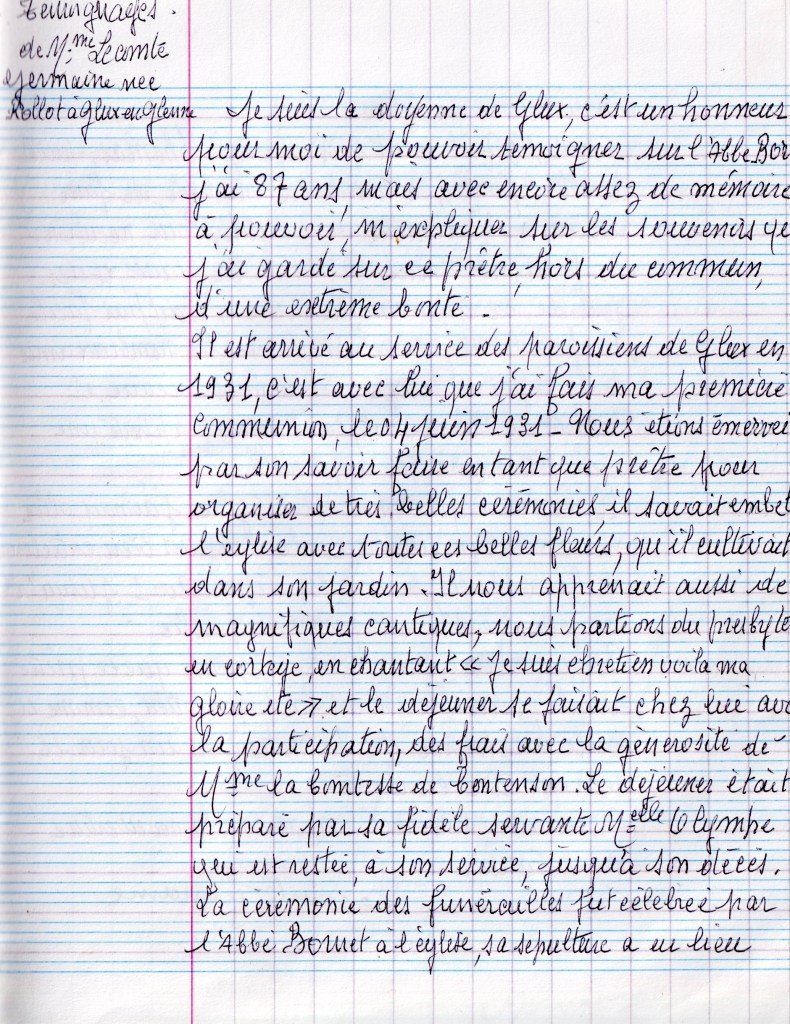 témoignages.
de Mme Lecomte
Germaine née
Rollot à Glux en Glenne
Je suis la doyenne de Glux, c'est un honneur
pour moi de pouvoir témoigner sur l'Abbé Bor
j'ai 87 ans, mais avec encore assez de mémoire
à pouvoir, m'expliquer sur les souvenirs qe
j'ai gardé sur ce prêtre, hors du commun,
d'une extrême bonté.
Il est arrivé au service des paroissiens de Glux en
1931, c'est avec lui que j'ai fais ma première
communion, le 04 juin 1931 - Nous étions émervei
par son savoir faire en tant que prêtre pour
organiser de très belles cérémonies, il savait embel
l'église avec toutes ces belles fleurs, qu'il cultivait
dans son jardin. Il nous apprenait aussi de
magnifiques cantiques, nous partions du presbytè
en cortège, en chantant « Je suis chrétien voilà ma
gloire etc » et le déjeuner se faisait chez lui ave
la participation, des frais avec la générosité de
Mme la Comtesse de Contenson. Le déjeuner était
préparé par sa fidèle servante Melle Olympe
qui est restée, à son service, jusqu'à son décès.
La cérémonie des funérailles fut célébrée par
l'Abbé Bornet à l'église, sa sépulture a eu lieu